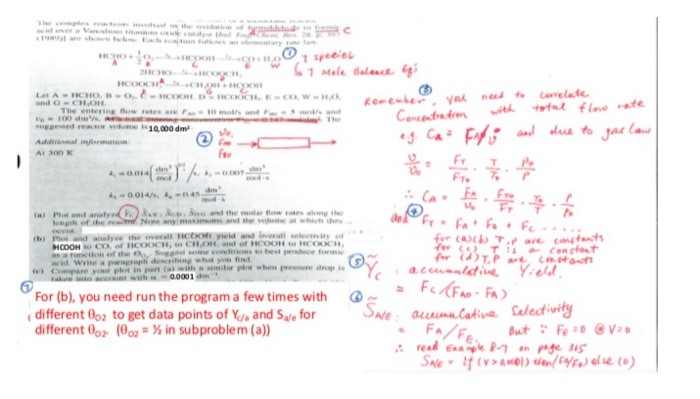 The complex reactions involved in the oxidation of formaldehyde to formic
acid over a Vanadium titanium oxide catalyst [Ind. Eng. Chem. Res. 28, p. 387
(1989)] are shown below. Each reaction follows an elementary rate law.
HCHO + ½O₂ → HCOOH → CO + H₂O ① 7 species
A B C E W ↳ 7 Mole Balance Eq's
2HCHO → HCOOCH₃
HCOOCH₃ → CH₃OH + HCOOH
Let A = HCHO, B = O₂, C = HCOOH, D = HCOOCH₃, E = CO, W = H₂O,
and G = CH₃OH.
The entering flow rates are F_A0 = 10 mol/s and F_B0 = 5 mol/s and
υ₀ = 100 dm³/s. The
suggested reactor volume is 10,000 dm³
Additional information: ② V₀, F_A0 F_B0
At 300 K
k₁ = 0.014 (dm³/mol)^1/2 /s, k₂ = 0.007 dm³/mol·s
k₃ = 0.014/s, k₄ = 0.45 dm³/mol·s
(a) Plot and analyze Y_C, and the molar flow rates along the
length of the reactor. Note any maximums and the volume at which they
occur.
(b) Plot and analyze the overall HCOOH yield and overall selectivity of
HCOOH to CO, of HCOOCH₃ to CH₃OH, and of HCOOH to HCOOCH₃
as a function of the Suggest some conditions to best produce formic
acid. Write a paragraph describing what you find.
(c) Compare your plot in part (a) with a similar plot when pressure drop is
taken into account with α = 0.0001 dm⁻³.
⑦
For (b), you need run the program a few times with
different θ_O2 to get data points of Y_c/a and S_a/e for
different θ_O2. (θ_O2 = ½ in subproblem (a))
③
Remember, you need to correlate
Concentration with total flow rate
e.g. C_A = F_A/υ and due to gas law
υ/υ₀ = F_T/F_T0 · T/T₀ · P₀/P
∴ C_A = F_A/υ₀ · F_T0/F_T · T₀/T · P/P₀
④
and F_T = F_A + F_B + F_C ....
for (a)(b) T, P are constants
for (c) T is a constant
for (d) T, P are constants
⑤ Ỹ_C : accumulative Yield.
= F_C/(F_A0 - F_A)
⑥
S̃_A/E : accumulative Selectivity
= F_A/F_E. But ∵ F_E = 0 @ V=0
∴ read Example 8-7 on page 315
S_A/E = if (V > 0.0001) then (F_A/F_E) else (0)